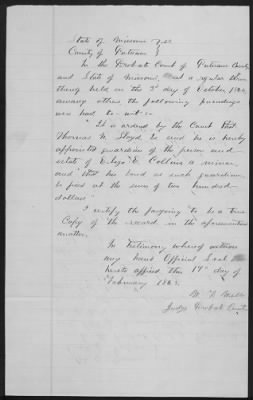 State of Missouri } SS
County of Putnam }
In the Probate Court of Putnam County
and State of Missouri, at a regular term
thereof held on the 3d day of October 186
among others, the following proceedings
was had to-wit:-
"It is ordered by the Court that
Thomas N. Lloyd be and he is hereby
appointed guardian of the person and
estate of E. Collins a minor,
and that his bond as such guardian,
be fixed at the sum of two hundred
dollars"
I certify the forgoing to be a true
Copy of the record in the aforementioned
matter.
In testimony whereof witness
my hand Official Seal
hereto affixed this 19th day of
February 186
Judge Probate Court